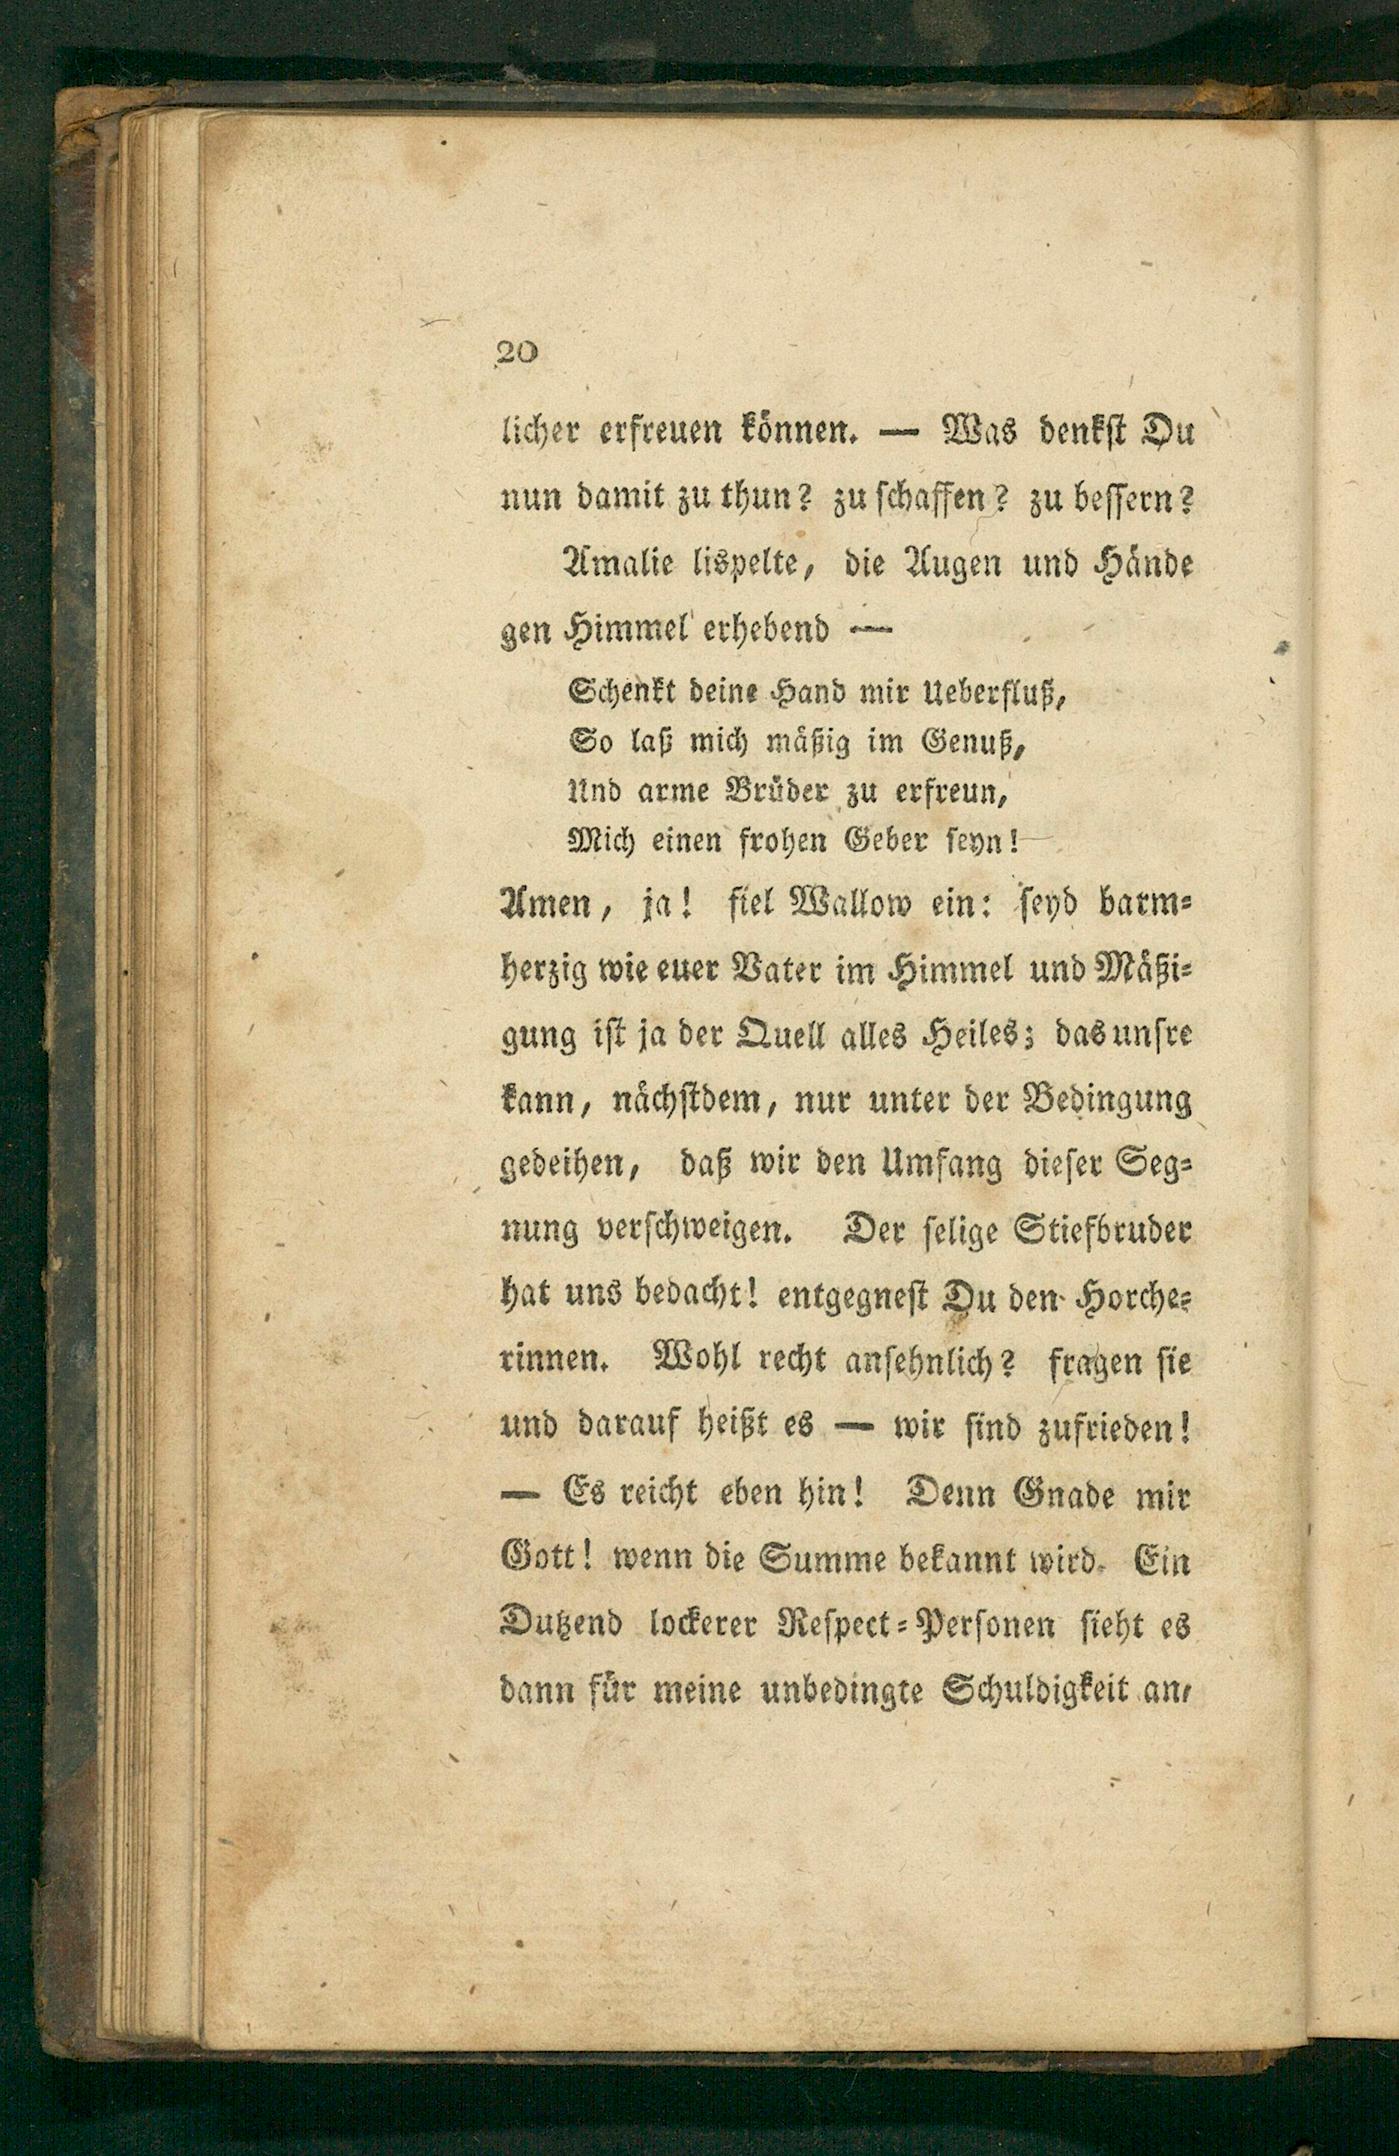 20
licher erfreuen können. — Was denkst Du
nun damit zu thun? zu schaffen? zu bessern?
Amalie lispelte, die Augen und Hände
gen Himmel erhebend —
Schenkt deine Hand mir Ueberfluß,
So laß mich mäßig im Genuß,
Und arme Brüder zu erfreun,
Mich einen frohen Geber seyn!
Amen, ja! fiel Wallow ein: seyd barm=
herzig wie euer Vater im Himmel und Mäßi=
gung ist ja der Quell alles Heiles; das unsre
kann, nächstdem, nur unter der Bedingung
gedeihen, daß wir den Umfang dieser Seg=
nung verschweigen. Der selige Stiefbruder
hat uns bedacht! entgegnest Du den Horche=
rinnen. Wohl recht ansehnlich? fragen sie
und darauf heißt es — wir sind zufrieden!
— Es reicht eben hin! Denn Gnade mir
Gott! wenn die Summe bekannt wird. Ein
Dutzend lockerer Respect=Personen sieht es
dann für meine unbedingte Schuldigkeit an,